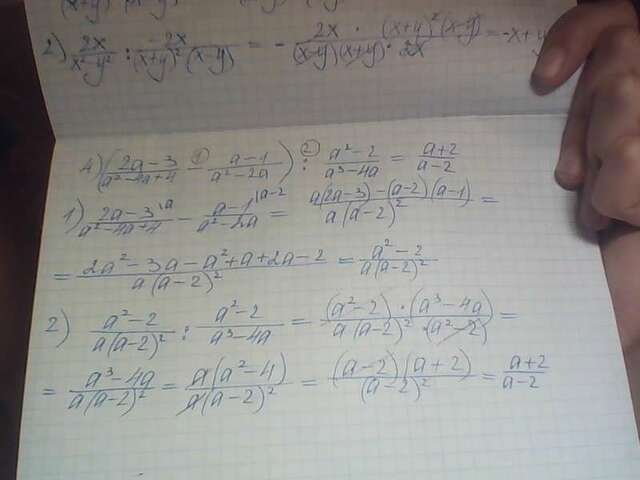 2) 2x/(x²-y²) : -2x/((x+y)²(x-y)) = - 2x · (x+y)²(x-y)/((x-y)(x+y) · 2x) = -x+y
4) ((2a-3)/(a²-4a+4) -① (a-1)/(a²-2a)) :② (a²-2)/(a³-4a) = (a+2)/(a-2)
1) (2a-3)/(a²-4a+4) |a - (a-1)/(a²-2a) |a-2 = (a(2a-3)-(a-2)(a-1))/(a(a-2)²) =
= (2a²-3a-a²+a+2a-2)/(a(a-2)²) = (a²-2)/(a(a-2)²)
2) (a²-2)/(a(a-2)²) : (a²-2)/(a³-4a) = (a²-2)·(a³-4a)/(a(a-2)²·(a²-2)) =
= (a³-4a)/(a(a-2)²) = a(a²-4)/(a(a-2)²) = (a-2)(a+2)/(a-2)² = (a+2)/(a-2)